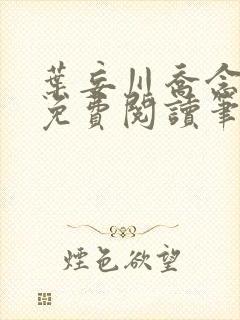 葉妄川喬念
免費閱讀筆
煙色欲望